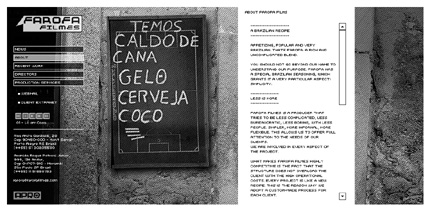 FAROFA
FILMES
NEWS
ABOUT
REVERT JAMF
DIRECTORS
PRODUCTION SERVICES
WEBMAIL
CLIENT EXTRANET
TEMOS
CALDO DE
CANA
GELO
CERVEJA
COCO
ABOUT FAROFA FILMS
A BRAZILIAN RECIPE
APPETISING, POPULAR AND VERY
BRAZILIAN. THAT'S FAROFA, A RICH AND
UNCOMPLICATED BLEND.
YOU SHOULD NOT GO BEYOND OUR NAME TO
UNDERSTAND OUR PURPOSE. FAROFA HAS
A SPECIAL, BRAZILIAN SEASONING, WHICH
GRANTS IT A VERY PARTICULAR ASPECT:
SIMPLICITY.
LESS IS MORE
FAROFA FILMES IS A PRODUCER THAT
TRIES TO BE LESS COMPLICATED, LESS
BUREAUCRATIC, LESS BORING, WITH LESS
PEOPLE. SIMPLER, MORE INFORMAL, MORE
FLEXIBLE. THIS ALLOWS US TO OFFER FULL
ATTENTION TO THE NEEDS OF OUR
CLIENTS.
WE ARE INVOLVED IN EVERY ASPECT OF
THE PROJECT.
WHAT MAKES FAROFA FILMES HIGHLY
COMPETITIVE IS THE FACT THAT THE
STRUCTURE DOES NOT OVERLOAD THE
CLIENT WITH THE HIGH OPERATIONAL
COSTS. EVERY PROJECT IS LIKE A NEW
RECIPE. THIS IS THE REASON WHY WE
ADOPT A CUSTOMIZED PROCESS FOR
EACH CLIENT.